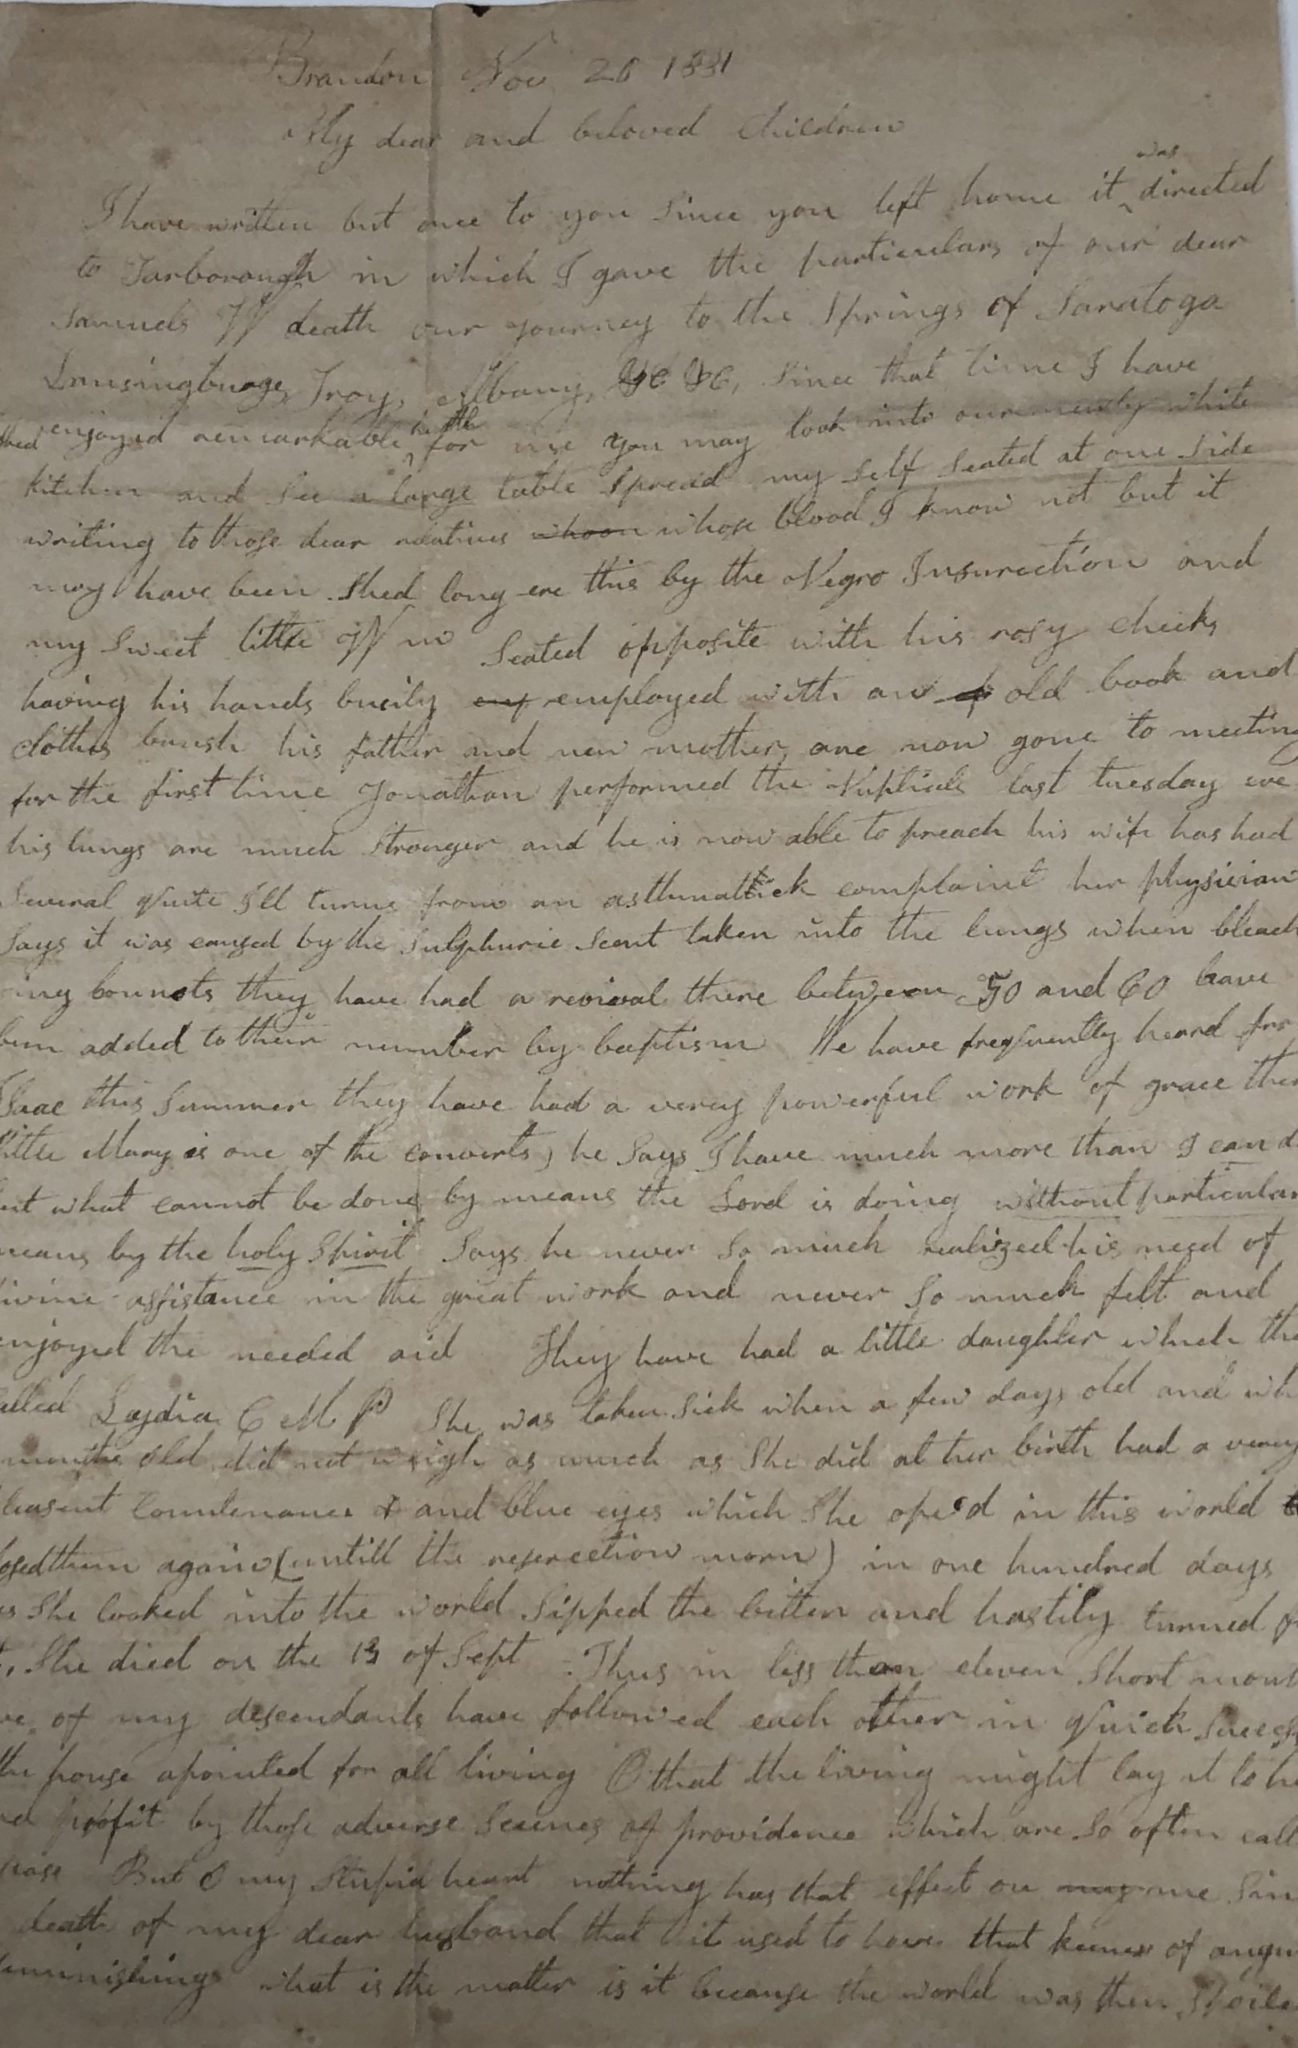 Brandon Nov 20 1831
My dear and beloved Children
I have written but once to you since you left home it was directed
to Tarborough in which I gave the particulars of our dear
Samuels W death our journey to the Springs of Saratoga
Lansingburge, Troy, Albany, &c &c, Since that time I have
enjoyed remarkable health for me you may look into our newly white
kitchen and see a large table spread my self seated at one side
writing to those dear relatives whoon whose blood I know not but it
may have been shed long ere this by the Negro Insurection and
my sweet little Wm seated opposite with his rosy cheeks
having his hands busily em employed with an old book and
clothes brush his father and new mother are now gone to meeting
for the first time Jonathan performed the Nuptials last tuesday eve
his lungs are much Stronger and he is now able to preach his wife has had
Several quite Ill turns from an asthmattick complaint her physician
Says it was caused by the Sulphuric Scent taken into the lungs when bleach
ing bonnets they have had a revival there between 50 and 60 have
been added to their number by baptism We have frequently heard fro
Isaac this Summer they have had a verey powerful work of grace ther
little Mary is one of the converts, he Says I have much more than I can d
but what cannot be done by means the Lord is doing without particular
means by the holy Spirit Says he never So much realized his need of
divine assistance in the great work and never So much felt and
enjoyed the needed aid They have had a little daughter which the
called Lydia C M P She was taken Sick when a few days old and wh
months old did not weigh as much as She did at her birth had a verey
pleasent Countenance & and blue eyes which She ope'd in this world
closed them again (untill the reserection morn) in one hundred days
as She looked into the world Sipped the bitter and hastily turned f
She died on the 13 of Sept Thus in less than eleven Short mont
of my descendants have followed each other in quick Success
the house apointed for all living O that the living might lay it to he
and profit by those adverse Scenes of providence which are So often call
But O my Stupid heart nothing has that effect on my me Sin
death of my dear husband that it used to have that keener of angui
what is the matter is it because the world was then Spoile